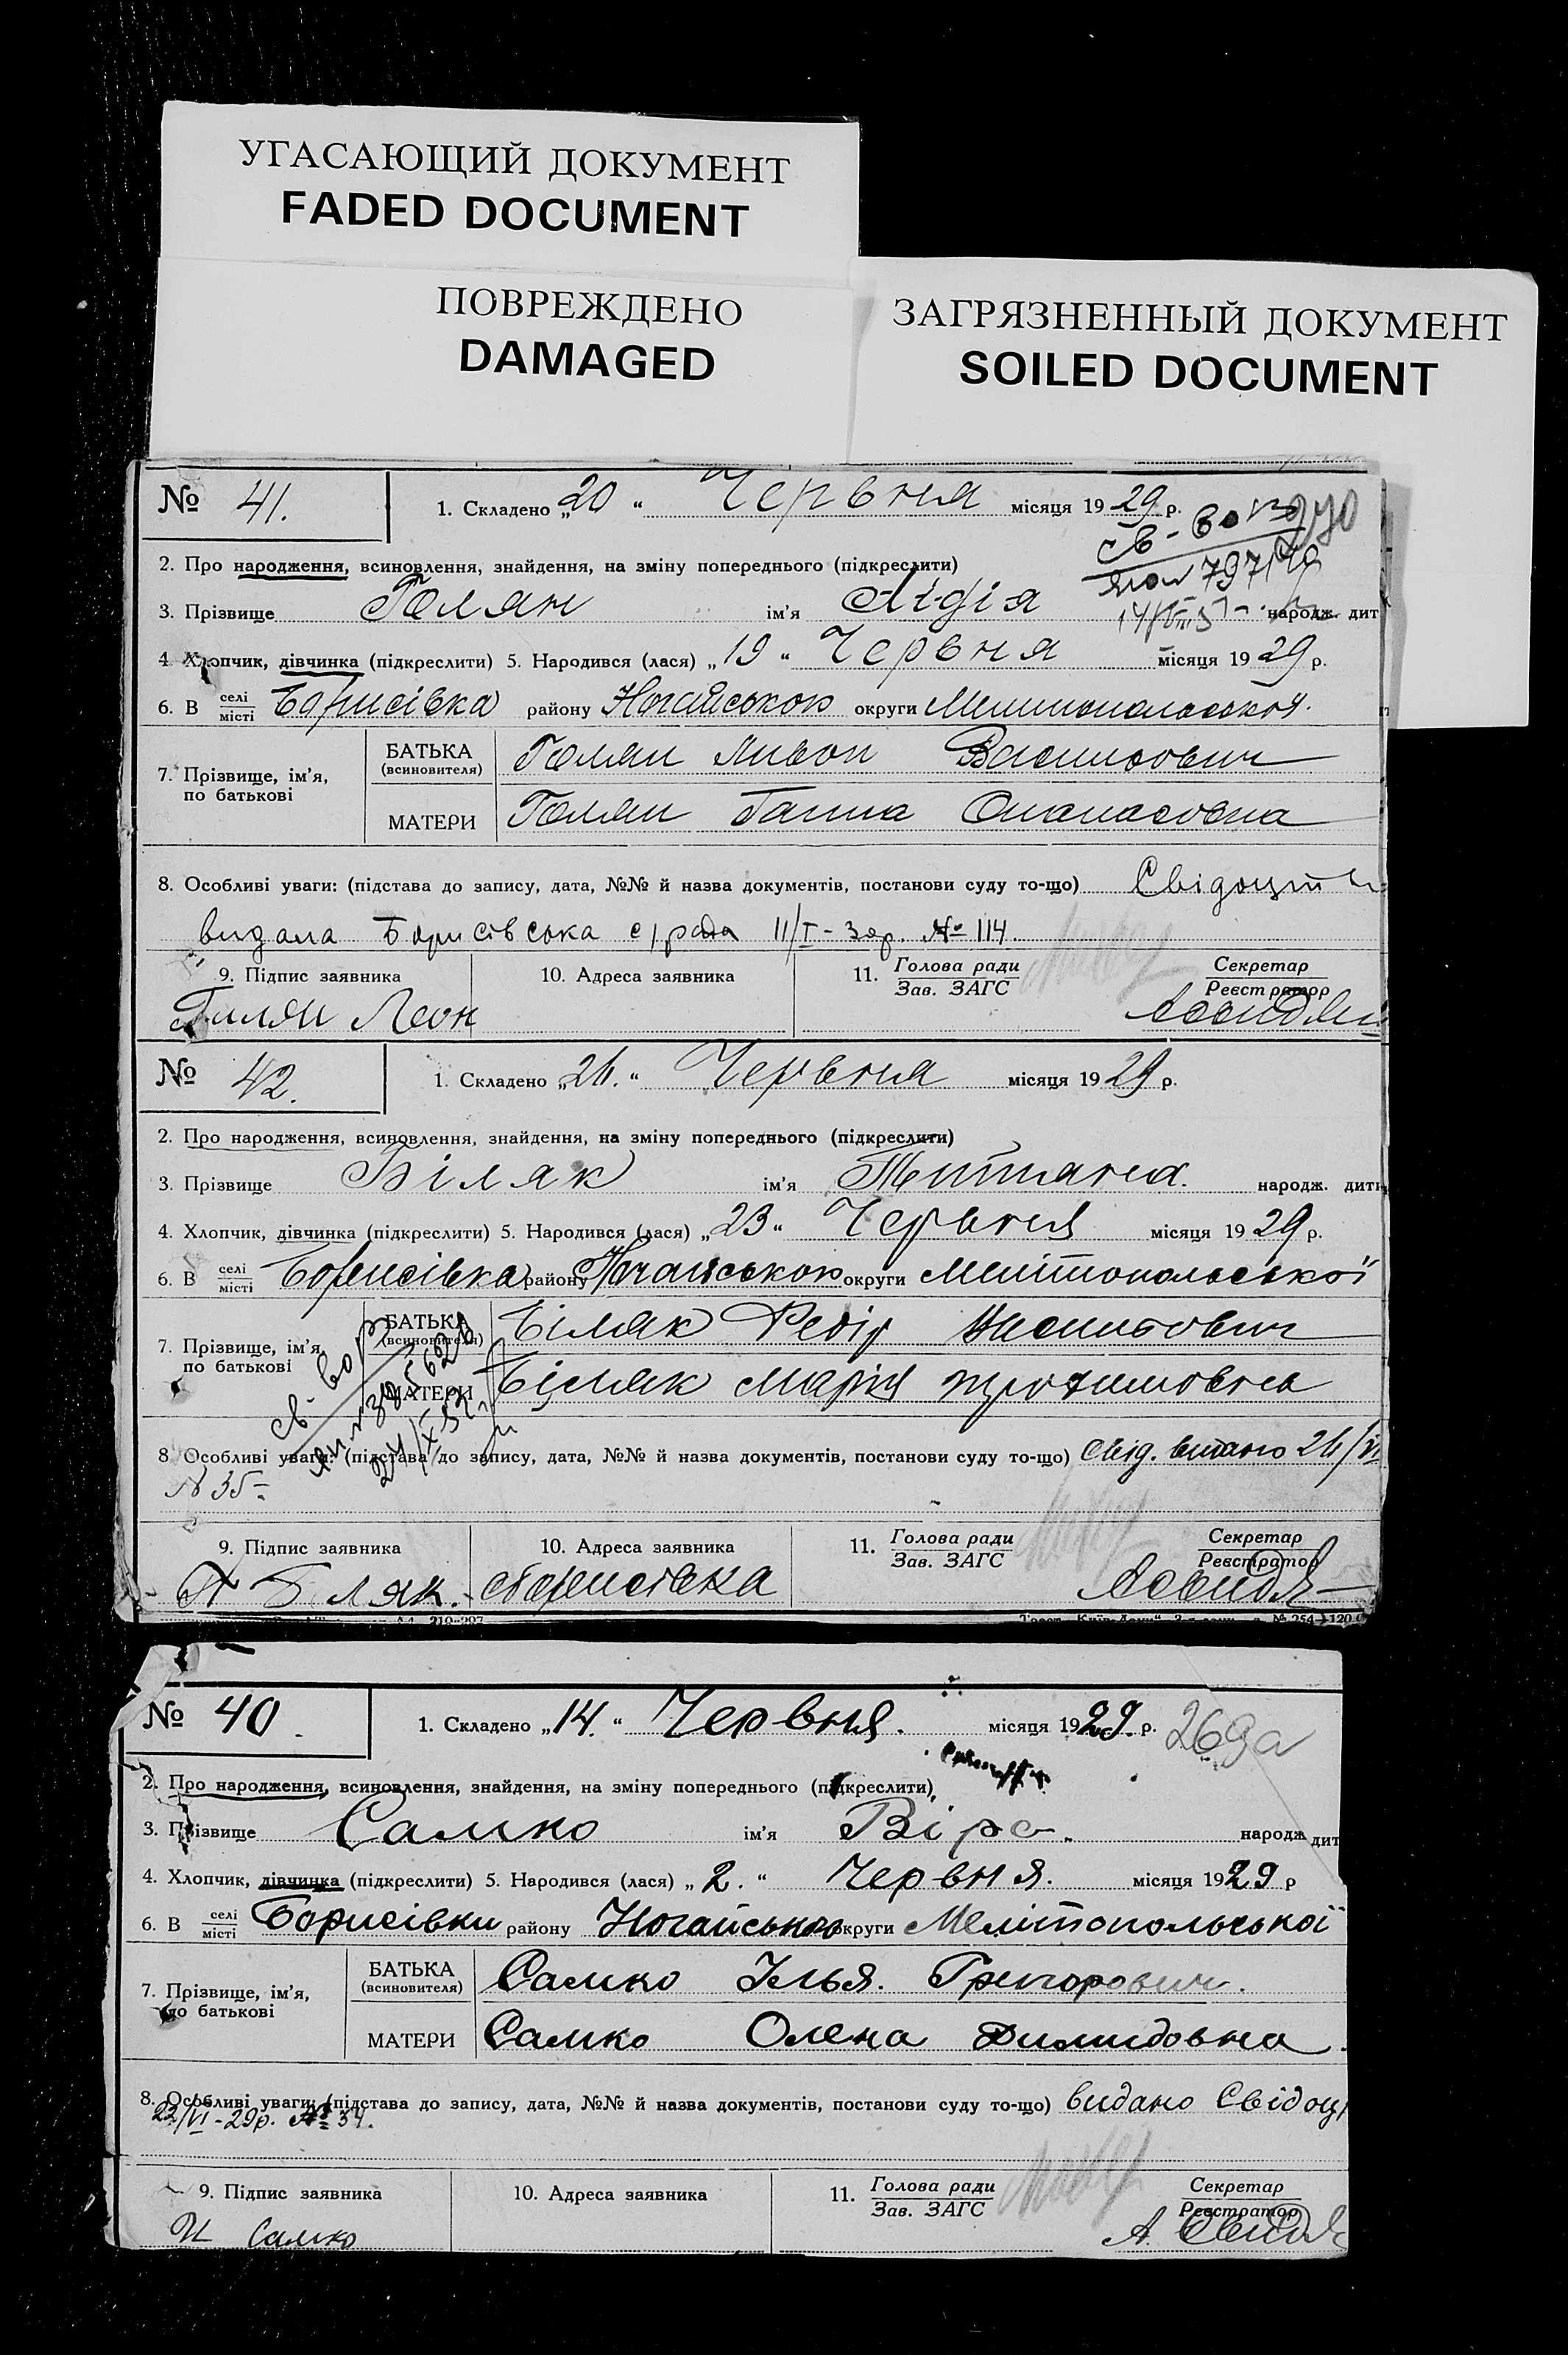 УГАСАЮЩИЙ ДОКУМЕНТ
FADED DOCUMENT
ПОВРЕЖДЕНО
DAMAGED
ЗАГРЯЗНЕННЫЙ ДОКУМЕНТ
SOILED DOCUMENT
№ 41. 1. Складено „20“ Червня місяця 1929 р.
св-во
2. Про народження, всиновлення, знайдення, на зміну попереднього (підкреслити)
3. Прізвище Голян ім'я Лідія народж. дит
4. Хлопчик, дівчинка (підкреслити) 5. Народився (лася) „19“ Червня місяця 1929 р.
6. В селі місті Борисівка району Ногайського округи Мелитопольської
7. Прізвище, ім'я, по батькові БАТЬКА (всиновителя) Голян Васильович
МАТЕРИ Голян Ганна Опанасовна
8. Особливі уваги: (підстава до запису, дата, №№ й назва документів, постанови суду то-що) Свідоцт
видала Борисівська с/рада № 114.
9. Підпис заявника 10. Адреса заявника 11. Голова ради Зав. ЗАГС Секретар Реєстратор
Голян Леон
№ 42. 1. Складено „26.“ Червня місяця 1929 р.
2. Про народження, всиновлення, знайдення, на зміну попереднього (підкреслити)
3. Прізвище Біляк ім'я Титяна. народж. дит
4. Хлопчик, дівчинка (підкреслити) 5. Народився (лася) „23“ Червня місяця 1929 р.
6. В селі місті Борисівка району Ногайського округи Мелітопольської
7. Прізвище, ім'я, по батькові БАТЬКА (всиновителя) Біляк Федір Васильович
МАТЕРИ Біляк Марія
св-во
8. Особливі уваги: (підстава до запису, дата, №№ й назва документів, постанови суду то-що) Свід. видано 26/VI
№ 35
9. Підпис заявника 10. Адреса заявника 11. Голова ради Зав. ЗАГС Секретар Реєстратор
Біляк. Борисівка
№ 40. 1. Складено „14.“ Червня. місяця 1929. р. 269а
2. Про народження, всиновлення, знайдення, на зміну попереднього (підкреслити)
3. Прізвище Самко ім'я Віра народж дит
4. Хлопчик, дівчинка (підкреслити) 5. Народився (лася) „2.“ Червня. місяця 1929 р
6. В селі місті Борисівки району Ногайського округи Мелітопольської
7. Прізвище, ім'я, по батькові БАТЬКА (всиновителя) Самко Илья. Григорович.
МАТЕРИ Самко Олена Димидовна.
8. Особливі уваги: (підстава до запису, дата, №№ й назва документів, постанови суду то-що) видано Свідоц
22/VI-29р. № 34.
9. Підпис заявника 10. Адреса заявника 11. Голова ради Зав. ЗАГС Секретар Реєстратор
И Самко А.